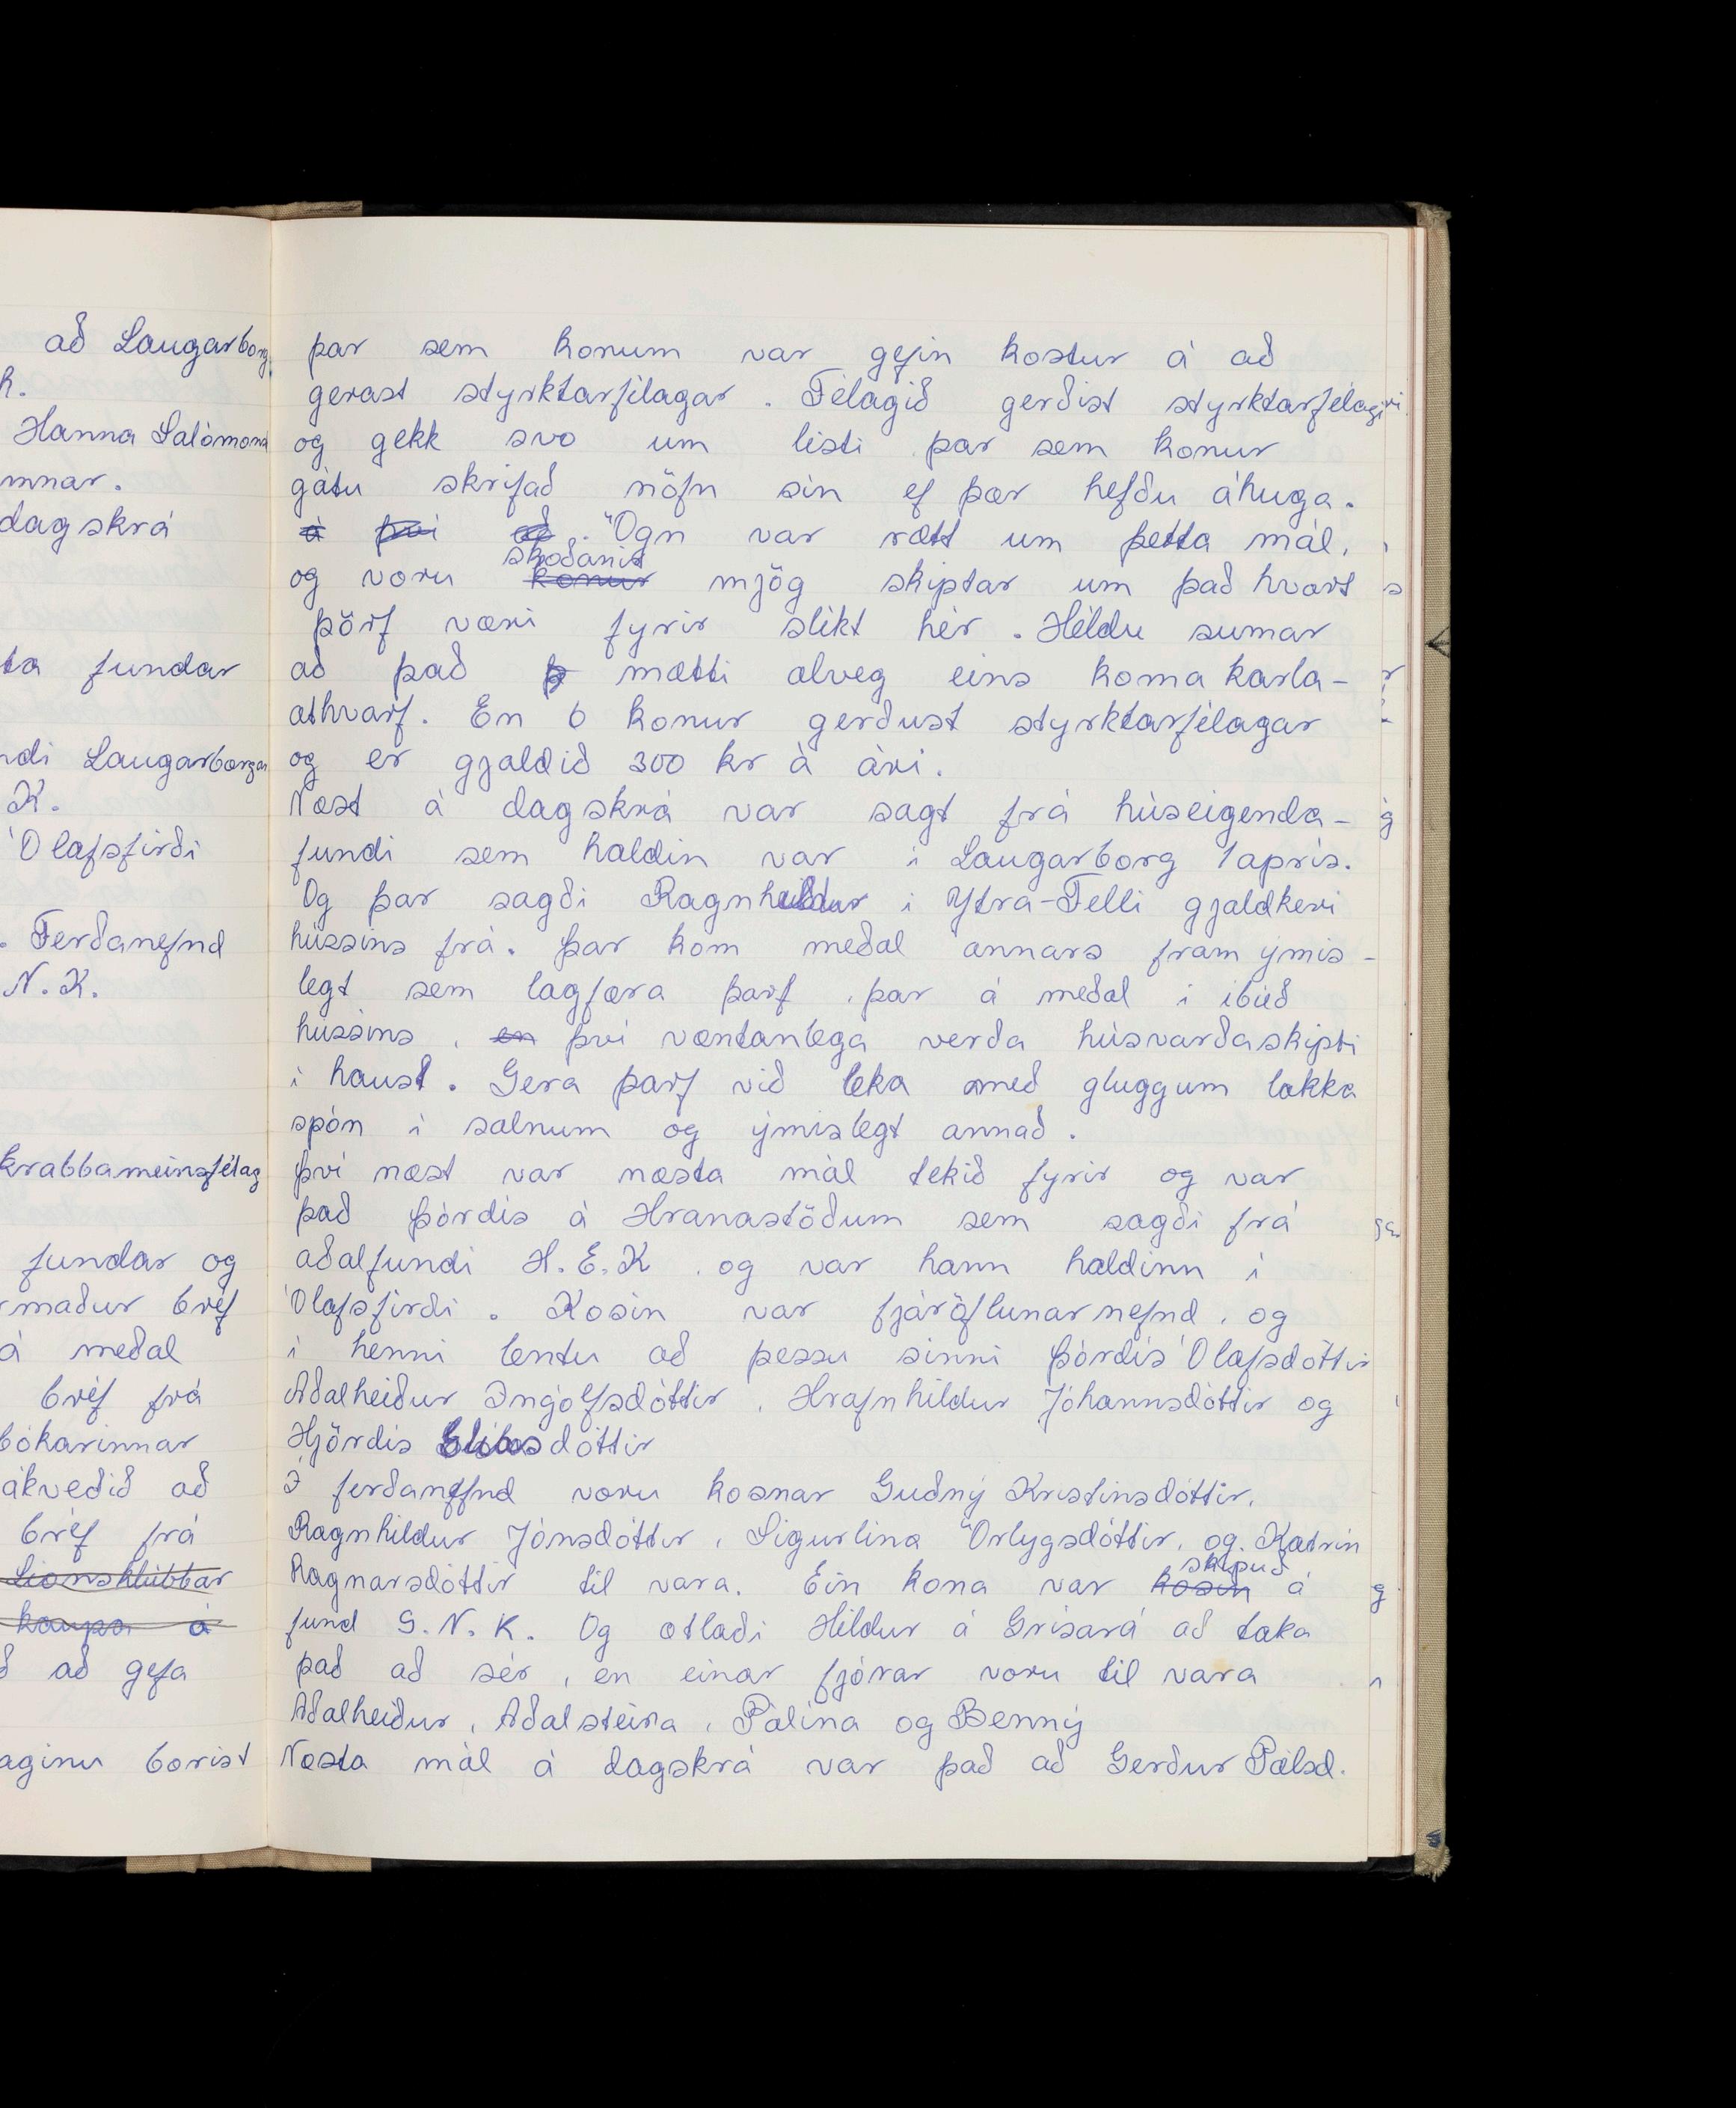 að Laugarborg
K.
Hanna Salómons
mnar.
dagskrá
ta fundar
ndi Laugarborgar
K.
Ólafsfirði
. Ferðanefnd
N.K.
krabbameinsfélag
fundar og
rmaður bréf
á meðal
bréf frá
bókarinnar
ákveðið að
bréf frá
Lionsklúbbar
kaupa á
ð að gefa
aginu borist
þar sem konum var gefin kostur á að
gerast styrktarfélagar. Félagið gerðist styrktarfélagi
og gekk svo um listi þar sem konur
gátu skrifað nöfn sín ef þær hefðu áhuga.
á því að. Ögn var rætt um þetta mál,
skoðanir
og voru konur mjög skiptar um það hvort
þörf væri fyrir slíkt hér. Héldu sumar
að það þ mætti alveg eins koma karla-
athvarf. En 6 konur gerðust styrktarfélagar
og er gjaldið 300 kr á ári.
Næst á dagskrá var sagt frá húseigenda-
fundi sem haldin var í Laugarborg 1 aprís.
Og þar sagði Ragnheiður í Ytra-Felli gjaldkeri
hússins frá. Þar kom meðal annars fram ýmis-
legt sem lagfæra þarf, þar á meðal í íbúð
hússins, en því væntanlega verða húsvarðaskipti
í haust. Gera þarf við leka með gluggum lakka
spón í salnum og ýmislegt annað.
Því næst var næsta mál tekið fyrir og var
það Þórdís á Hranastöðum sem sagði frá
aðalfundi H.E.K. og var hann haldinn í
Ólafsfirði. Kosin var fjáröflunarnefnd, og
í henni lentu að þessu sinni Þórdís Ólafsdóttir
Aðalheiður Ingólfsdóttir, Hrafnhildur Jóhannsdóttir og
Hjördís Elíasdóttir
Í ferðanefnd voru kosnar Guðný Kristinsdóttir,
Ragnhildur Jónsdóttir, Sigurlína Örlygsdóttir, og Katrín
skipuð
Ragnarsdóttir til vara. Ein kona var kosin á
fund S.N.K. Og ætlaði Hildur á Grísará að taka
það að sér, en einar fjórar voru til vara
Aðalheiður, Aðalsteina, Pálína og Benný
Næsta mál á dagskrá var það að Gerður Pálsd.